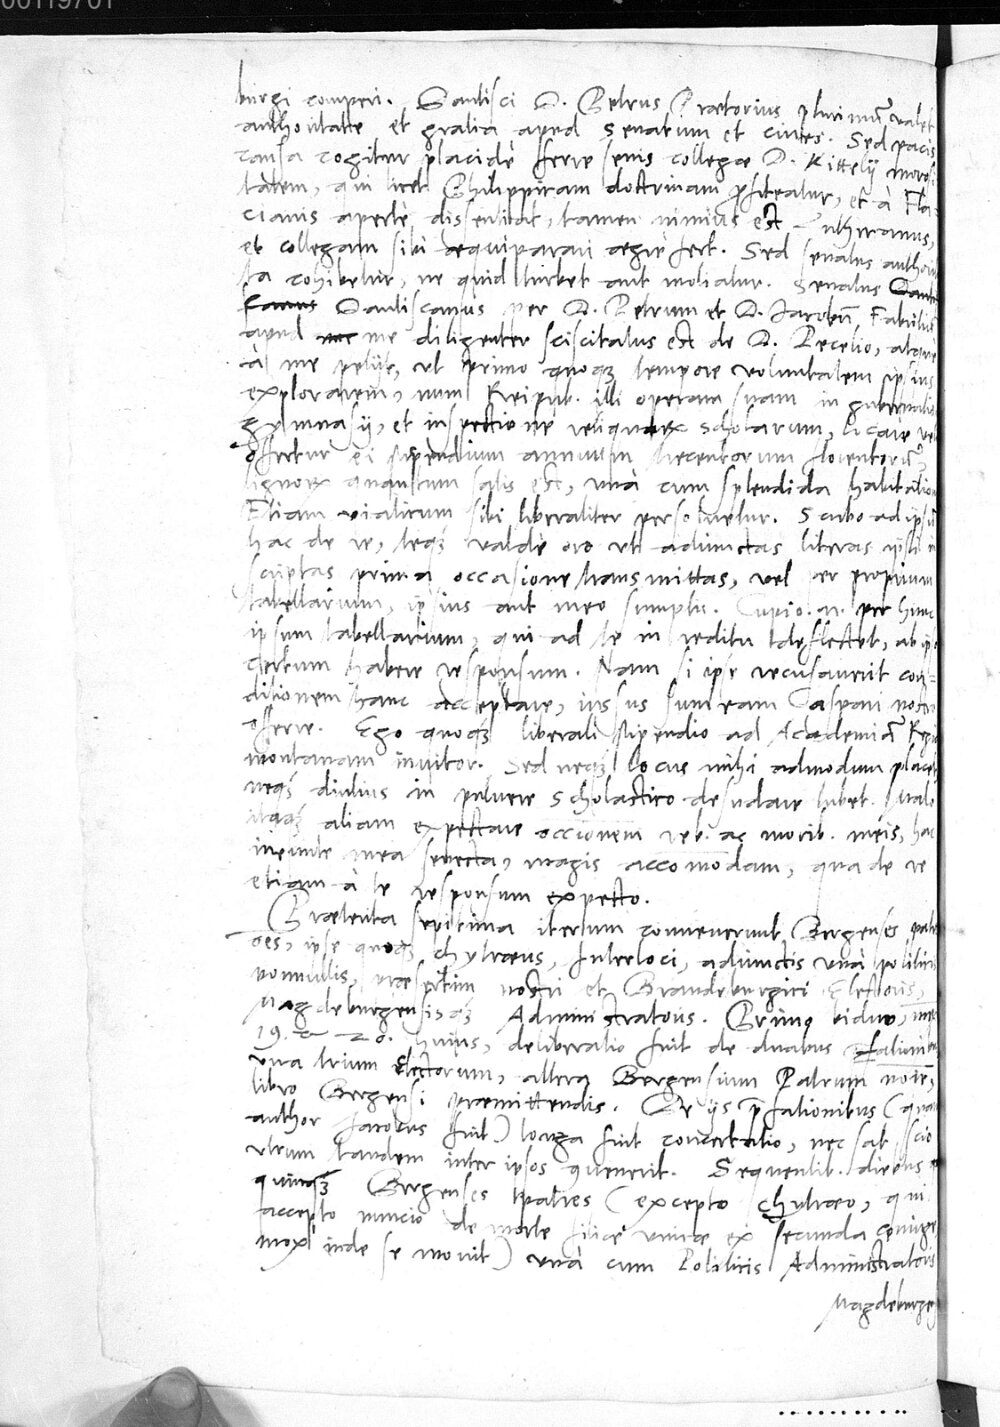 00119701
burgi comperi. Dantisci D. Petrus Praetorius plurimū valet
authoritate et gratia apud senatum et cives. Sed pacis
causa cogitur placidè ferre senis collegae D. Kittelij morosi
tatem, qui licet Philippicam doctrinam profiteatur, et à Fla-
cianis apertè dissentiat, tamen nimius est Lutheranus,
et collegam sibi aequiparari aegrè fert. Sed senatus authori
ta cohibetur, ne quid turbet aut moliatur. Senatus
Dantiscanus per D. Petrum et D. Jacobū Fabritiū
apud me diligenter sciscitatus est de D. Pecelio, atque
à me petijt, ut primo quoq3 tempore voluntatem ipsius
explorarem, num Reipub. illi operam suam in gubernatio
gymnasij, et inspectione reliquarx scholarum, locare vel
offertur ei stipendium annuum trecentorum florenorū,
lignorx quantum satis est, unà cum splendida habitation
Etiam viaticum sibi liberaliter persolvetur. Scribo ad ipsū
hac de re, teq3 valdè oro ut adiunctas literas ipsi in
scriptas prima occasione transmittas, vel per proprium
tabellarium, ipsius aut meo sumptu. Cupio .n. per hunc
ipsum tabellarium, qui ad te in reditu deflectet, ab ipso
certum habere responsum. Nam si ipse recusaverit con-
ditionem hanc acceptare, iussus sum eam Caspari nostro
offerre. Ego quoq3 liberali stipendio ad Academiā Regio
montanam invitor. Sed neq3 locus mihi admodum placet
neq3 diutius in pulvere scholastico desudare lubet. Malo
itaq3 aliam expectare occōnem reb. ac morib. meis, hac
ineunte mea senecta, magis accomōdam, qua de re
etiam à te responsum expecto.
Praeterita septima iterum convenerunt Bergenses patr
es, ipse quoq3 Chytraeus, Interloci, adiunctis unà politicis
nonnullis, praesertim nostri et Brandeburgici Electoris,
Magdeburgensisq3 Administratoris. Primo biduo,
19. et 20. huius, deliberatio fuit de duabus
una trium Electorum, altera Bergensium Patrum noīe,
libro Bergensi praemittendis. De ijs p̄fationibus (quarum
author Jacobus fuit) longa fuit concertatio, nec sat scio
utrum tandem inter ipsos quenerit. Sequentib. diebus
quinq3 Bergenses patres (excepto Chytraeo, qui
accepto nuncio de morte filiae unicae ex secunda coniuge
mox inde se movit) unà cum Politicis Administratoris
Magdeburgen